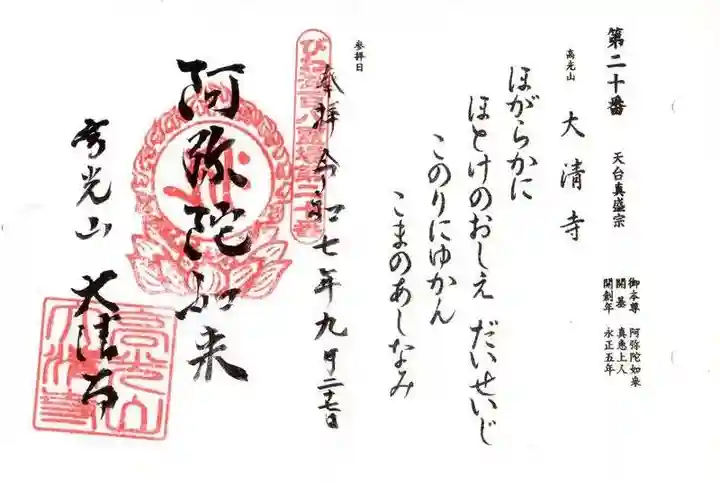 第二十番
天台真盛宗
高光山
大清寺
御本尊 阿弥陀如来
開基 真恵上人
開創年 永正五年
ほがらかに
ほとけのおしえ だいせいじ
このりにゆかん
こまのあしなみ
参拝日
奉拝 令和七年九月二十七日
びわ湖百八霊場第二十番
阿弥陀如来
高光山 大清寺
高光山
大清寺